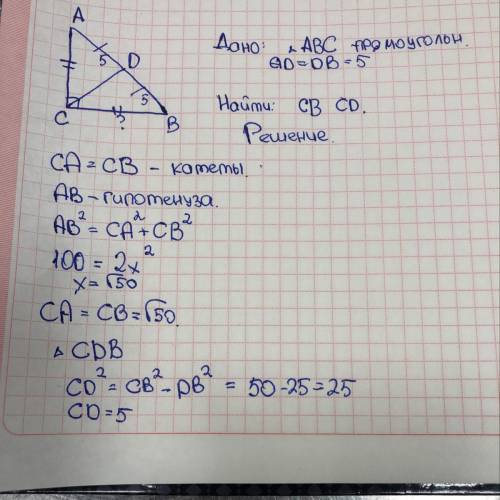 A
5
D
5
C
?
B
Дано: △ABC прямоугольн.
AD=DB=5
Найти: CB CD.
Решение.
CA = CB – катеты.
AB – гипотенуза.
AB² = CA² + CB²
100 = 2x²
x = √50
CA = CB = √50.
△ CDB
CD² = CB² – DB² = 50 – 25 = 25
CD = 5